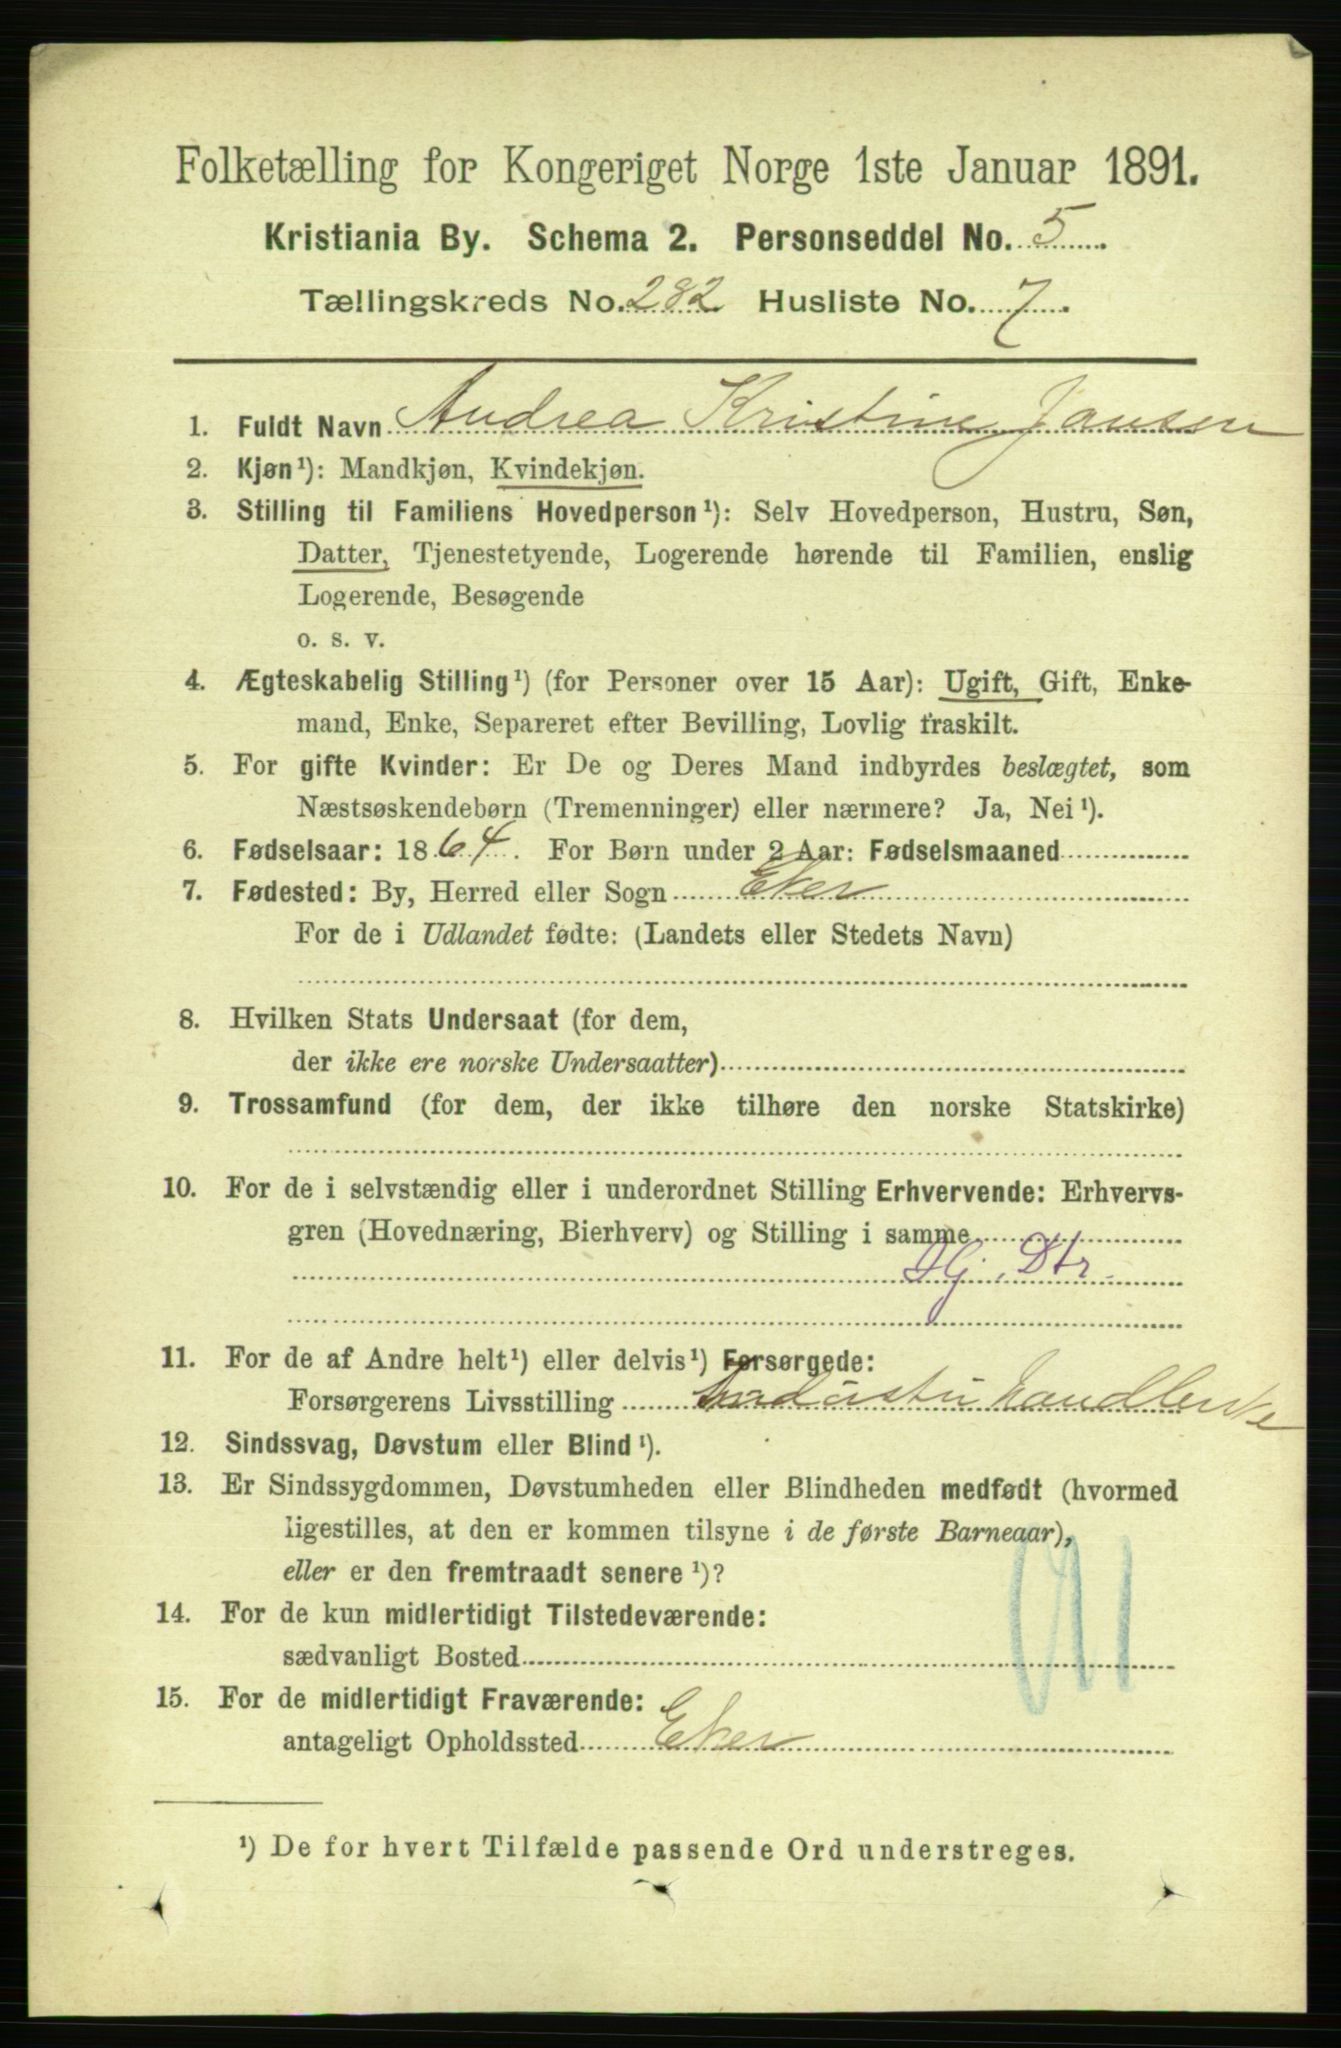 Folketælling for Kongeriget Norge 1ste Januar 1891.
Kristiania By. Schema 2. Personseddel No. 5
Tællingskreds No. 282 Husliste No. 7
1. Fuldt Navn Andrea Kristine Jansen
2. Kjøn¹): Mandkjøn, Kvindekjøn.
3. Stilling til Familiens Hovedperson¹): Selv Hovedperson, Hustru, Søn,
Datter, Tjenestetyende, Logerende hørende til Familien, enslig
Logerende, Besøgende
o. s. v.
4. Ægteskabelig Stilling¹) (for Personer over 15 Aar): Ugift, Gift, Enke-
mand, Enke, Separeret efter Bevilling, Lovlig fraskilt.
5. For gifte Kvinder: Er De og Deres Mand indbyrdes beslægtet, som
Næstsøskendebørn (Tremenninger) eller nærmere? Ja, Nei¹).
6. Fødselsaar: 1864. For Børn under 2 Aar: Fødselsmaaned
7. Fødested: By, Herred eller Sogn Eker
For de i Udlandet fødte: (Landets eller Stedets Navn)
8. Hvilken Stats Undersaat (for dem,
der ikke ere norske Undersaatter)
9. Trossamfund (for dem, der ikke tilhøre den norske Statskirke)
10. For de i selvstændig eller i underordnet Stilling Erhvervende: Erhvervs-
gren (Hovednæring, Bierhverv) og Stilling i samme
Hj. Dtr.
11. For de af Andre helt¹) eller delvis¹) Forsørgede:
Forsørgerens Livsstilling
12. Sindssvag, Døvstum eller Blind¹).
13. Er Sindssygdommen, Døvstumheden eller Blindheden medfødt (hvormed
ligestilles, at den er kommen tilsyne i de første Barneaar),
eller er den fremtraadt senere¹)?
14. For de kun midlertidigt Tilstedeværende:
sædvanligt Bosted
15. For de midlertidigt Fraværende:
antageligt Opholdssted Eker
¹) De for hvert Tilfælde passende Ord understreges.